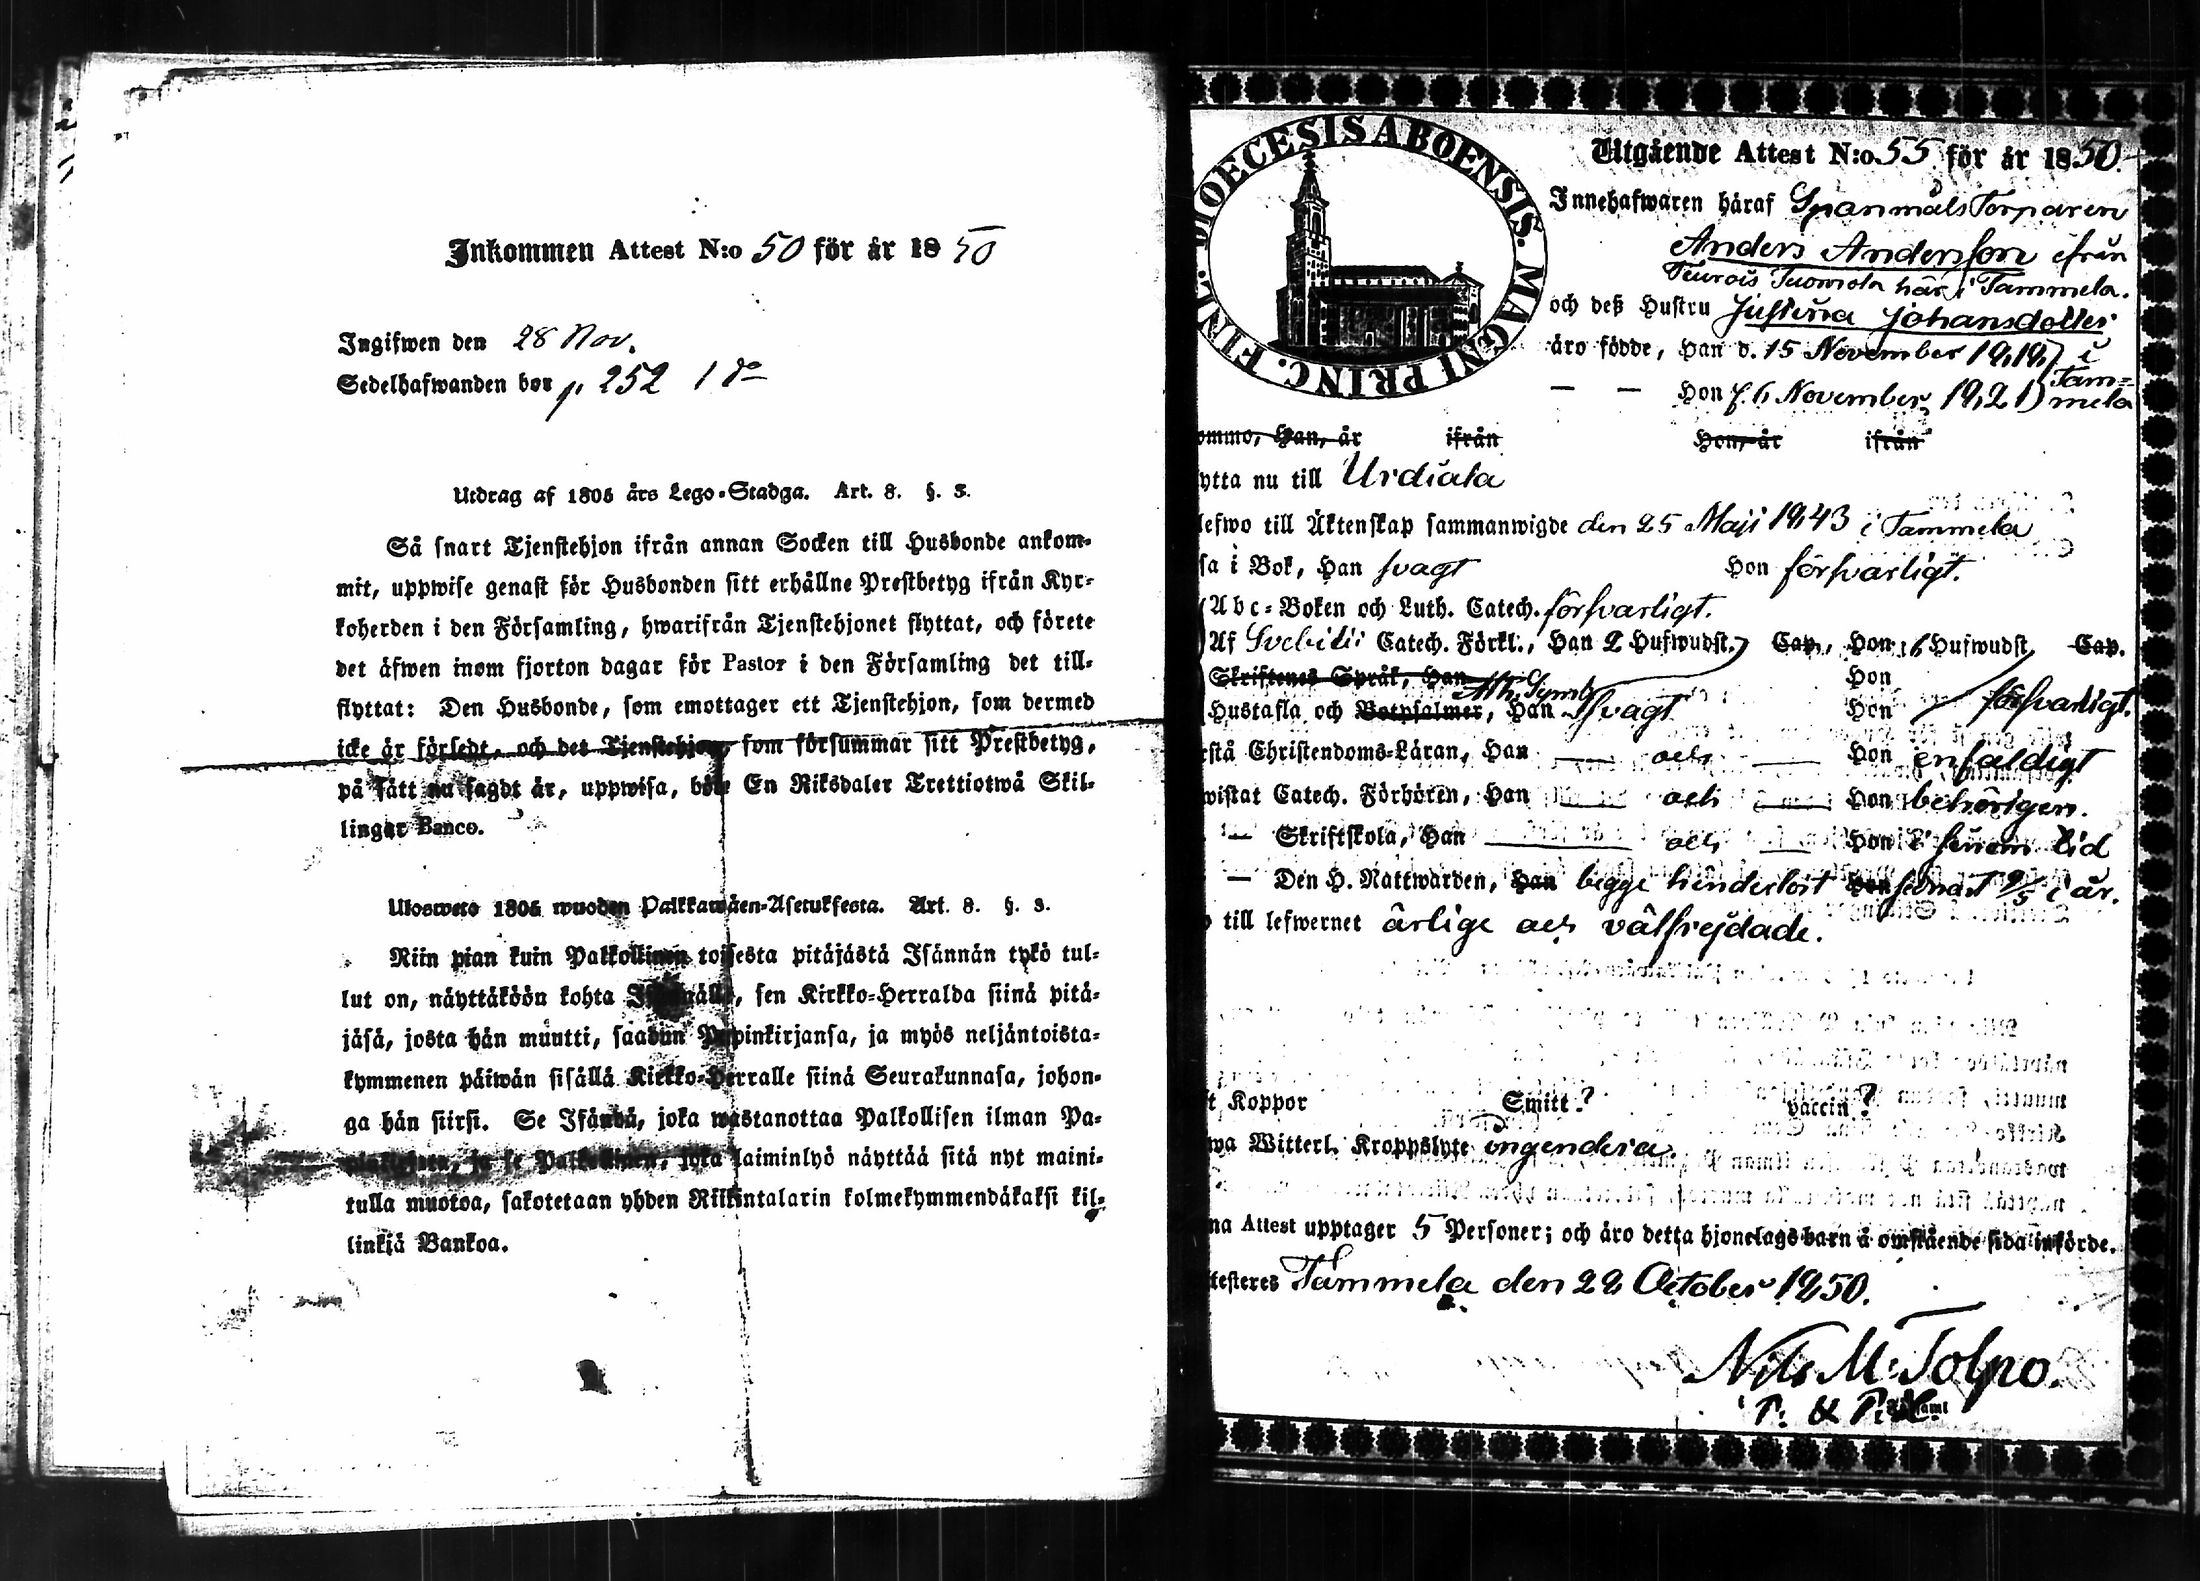 Inkommen Attest N:o 50 för år 1850
Ingifwen den 28 Nov.
Sedelhafwanden bor p. 252
Utdrag af 1805 års Lego-Stadga. Art. 8. §. 3.
Så snart Tjenstehjon ifrån annan Socken till Husbonde ankom-
mit, uppwise genast för Husbonden sitt erhållne Prestbetyg ifrån Kyr-
koherden i den Församling, hwarifrån Tjenstehjonet flyttat, och förete
det äfwen inom fjorton dagar för Pastor i den Församling det till-
flyttat: Den Husbonde, som emottager ett Tjenstehjon, som dermed
icke är försedt, och det Tjenstehjon, som försummar sitt Prestbetyg,
på sätt nu sagdt är, uppwisa, böte En Riksdaler Trettiotwå Skil-
lingar Banco.
Ulosweto 1805 wuoden Palkkawäen-Asetuksesta. Art. 8. §. 3.
Niin pian kuin Palkollinen toisesta pitäjästä Isännän tykö tul-
lut on, näyttäköön kohta Isännälle, sen Kirkko-Herralda siinä pitä-
jäsä, josta hän muutti, saadun Papinkirjansa, ja myös neljäntoista-
kymmenen päiwän sisällä Kirkko-Herralle siinä Seurakunnasa, johon-
ga hän siirsi. Se Isändä, joka wastanottaa Palkollisen ilman Pa-
pinkirjata, ja se Palkollinen, joka laiminlyö näyttää sitä nyt maini-
tulla muotoa, sakotetaan yhden Riikintalarin kolmekymmendäkaksi kil-
linkiä Bankoa.
DIOECESIS ABOENSIS. MAGNI PRINC. FINL.
Utgående Attest N:o 55 för år 1850.
Innehafwaren häraf Spanmåls Torparen
Anders Andersson ifrån
Tuomola här i Tammela.
och deß Hustru Justina Johansdotter
äro födde, Han d. 15 November 1818 i
— — Hon d. 6 November 1821 Tam=
mela
ommo, Han, år ifrån Hon, år ifrån
ytta nu till Urdiala
lefwo till Äktenskap sammanwigde den 25 Maji 1843 i Tammela
sa i Bok, Han svagt Hon försvarligt.
Abc-Boken och Luth. Catech. försvarligt.
Af Svebilii Catech. Förkl., Han 2 Hufwudst. Cap., Hon 6 Hufwudst. Cap.
Skriftenes Språk, Han Hon
Ath. Symb.
Hustafla och Botpsalmer, Han svagt Hon försvarligt.
rstå Christendoms-Läran, Han — och — Hon enfaldigt
wistat Catech. Förhören, Han — och — Hon behörigen.
— Skriftskola, Han — och — Hon i sinom tid
— Den H. Nattwarden, Han begge hindelöst Hon senast 9/5 i år.
till lefwernet ärlige och välfrejdade.
t Koppor Smitt.? vaccin.?
wa Witterl. Kroppslyte ingendera.
na Attest upptager 5 Personer; och äro detta hjonelags barn å omstående sida införde.
testeres Tammela den 28 October 1850.
Nils M: Tolpo.